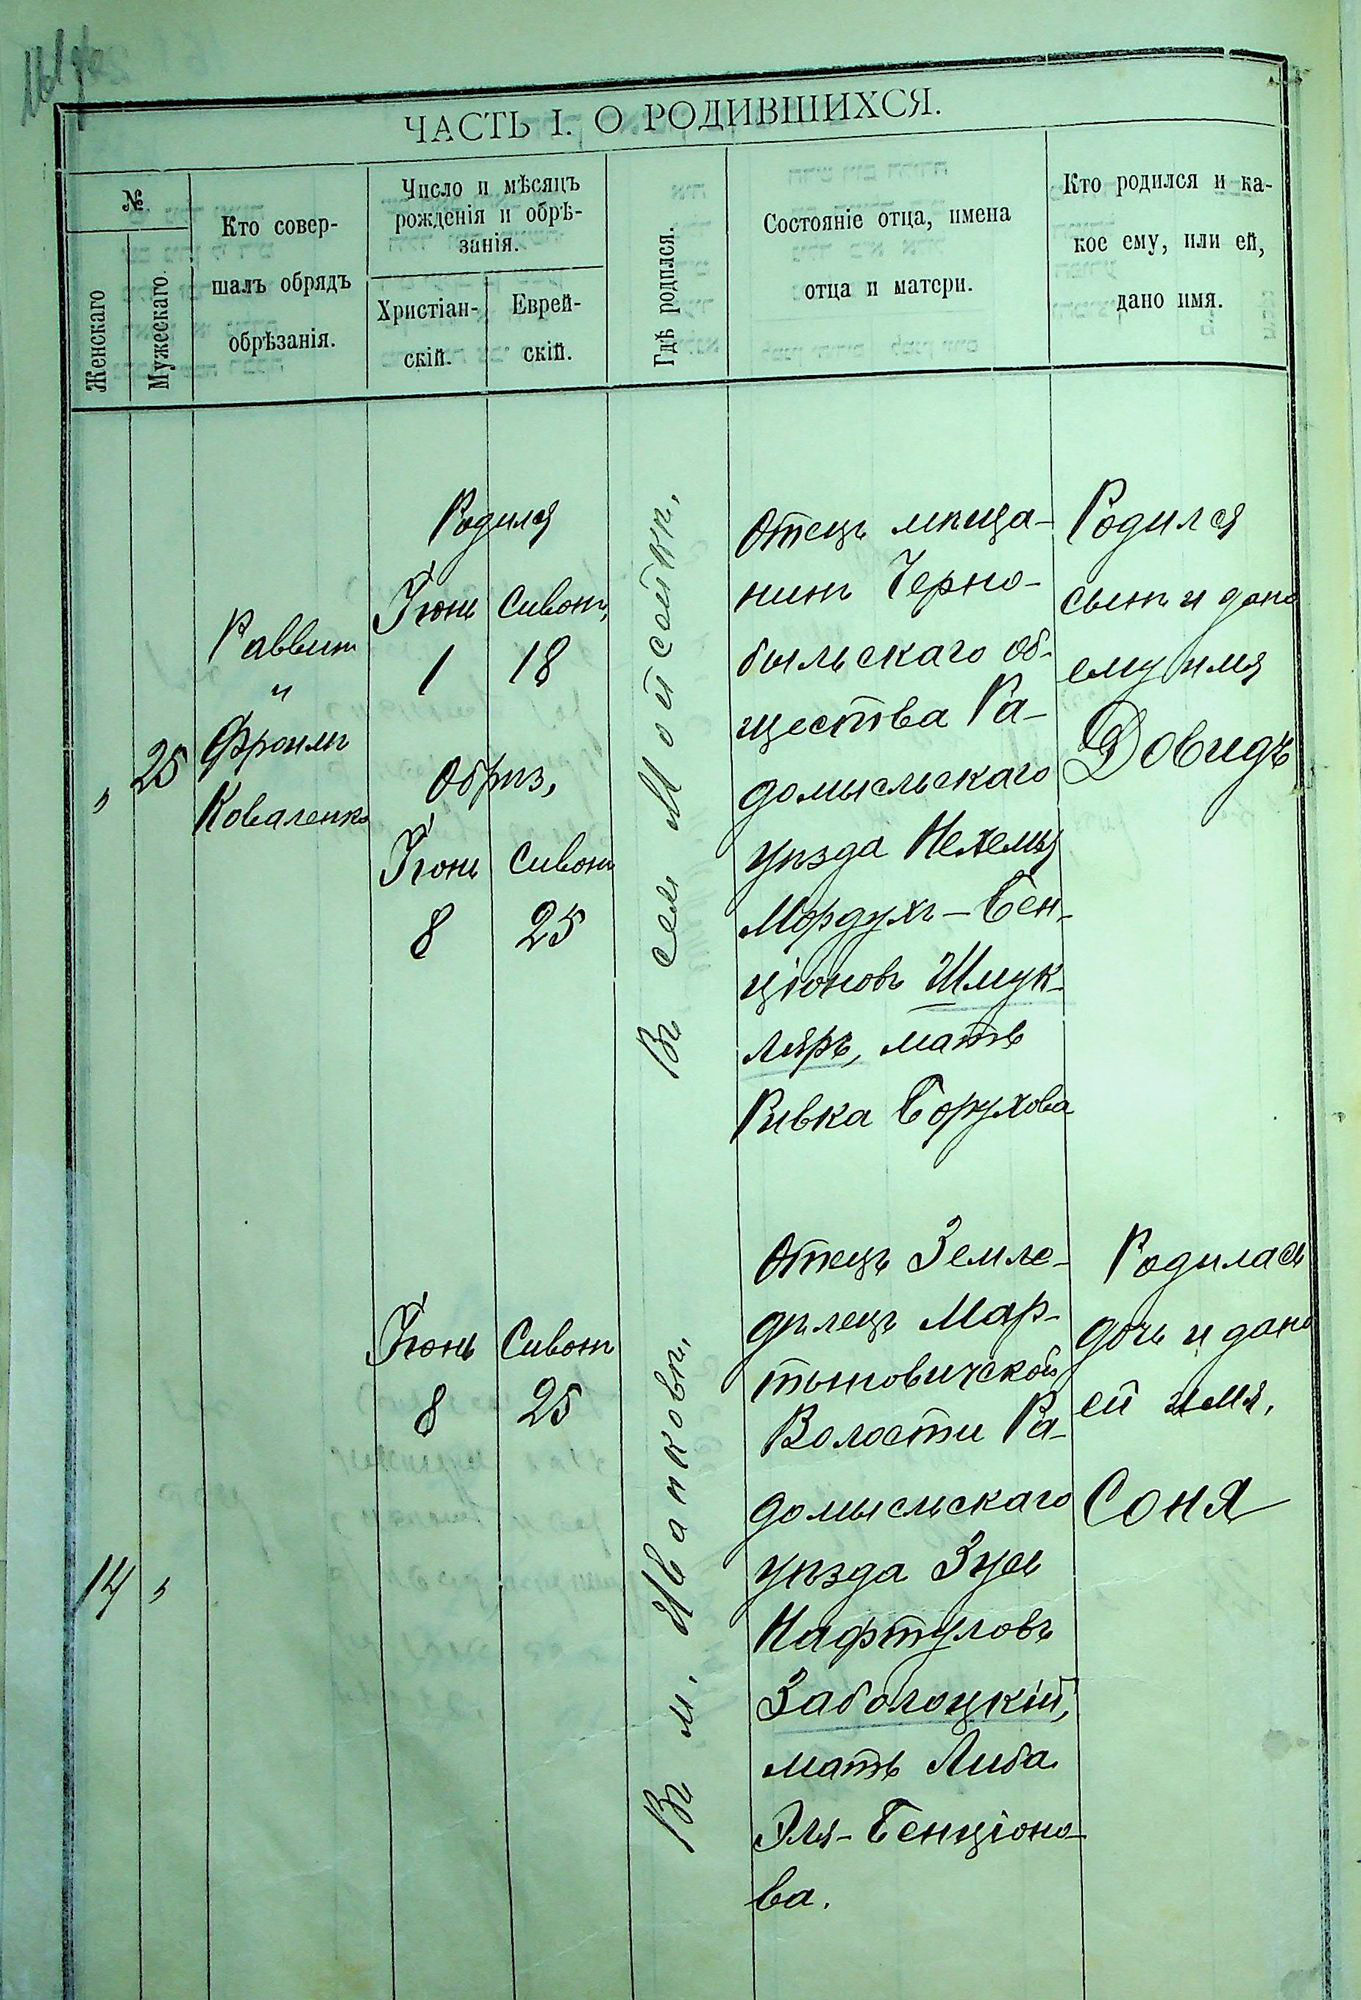 ЧАСТЬ I. О РОДИВШИХСЯ.
№
Женскаго
Мужескаго.
Кто совер-
шалъ обрядъ
обрѣзанія.
Число и мѣсяцъ
рожденія и обрѣ-
занія.
Христіан-
скій.
Еврей-
скій.
Гдѣ родился.
Состояніе отца, имена
отца и матери.
Кто родился и ка-
кое ему, или ей,
дано имя.
„
25
Раввин
и
Фроимъ
Коваленко
Родился
Іюнь
1
Сивонъ,
18
Обрѣз,
Іюнь
8
Сивонъ
25
Въ селѣ Мойсейкѣ,
Отецъ мѣща-
нинъ Черно-
быльскаго об-
щества Ра-
домысльскаго
уѣзда Нехемья
Мордухъ-Бен-
ціоновъ Шмук-
ляръ, мать
Ривка Борухова
Родился
сынъ и дано
ему имя
Довидъ
14
„
Іюнь
8
Сивонъ
25
Въ м. Иванковѣ,
Отецъ Земле-
дѣлецъ Мар-
тыновичской
Волости Ра-
домысльскаго
уѣзда Зусь
Нафтуловъ
Заболоцкій,
мать Либа
Эля-Бенціоно-
ва.
Родилась
дочь и дано
ей имя,
Соня